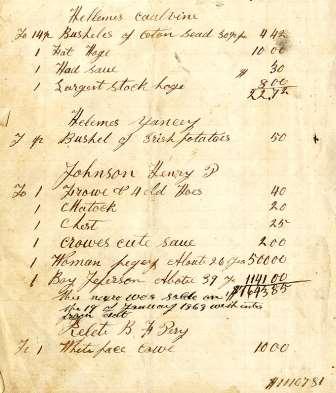 Hellemes Caulvine
To 14½ Bushels of Coton Sead 30 p 4 42
1 Fat Hoge 10 00
1 Had saue 30
1 Largent Stock hoge 8 00
$22,72
Helemes Yancey
T ½ Bushel of Irish Potatoes 50
Johnson Henry P
To 1 Frowe & 4 old Hoes 40
1 Matock 20
1 Chest 25
1 Crowes cute saue 2 00
1 Woman About 26 500 00
1 Boy Jeferson Aboute 39 1141 00
This negro was solde on $1643 85
the 19 of January 1863 with
Relete B F Pery
To 1 White face Cowe 10 00
$1110781